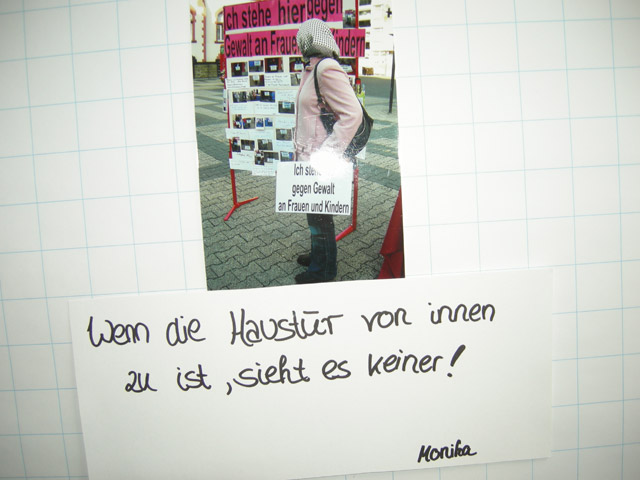 Ich stehe hier gegen
Gewalt an Frauen Kindern
Ich
gegen Gewalt
an Frauen und Kindern
Wenn die Haustür von innen
zu ist, sieht es keiner!
Monika